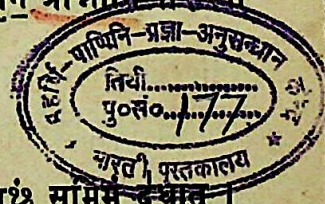 महर्षि-पाणिनि-प्रज्ञा-अनुसन्धान केन्द्र
तिथी..............
पु०सं०...177...
* भारती पुस्तकालय *
समिमं दधातु ।